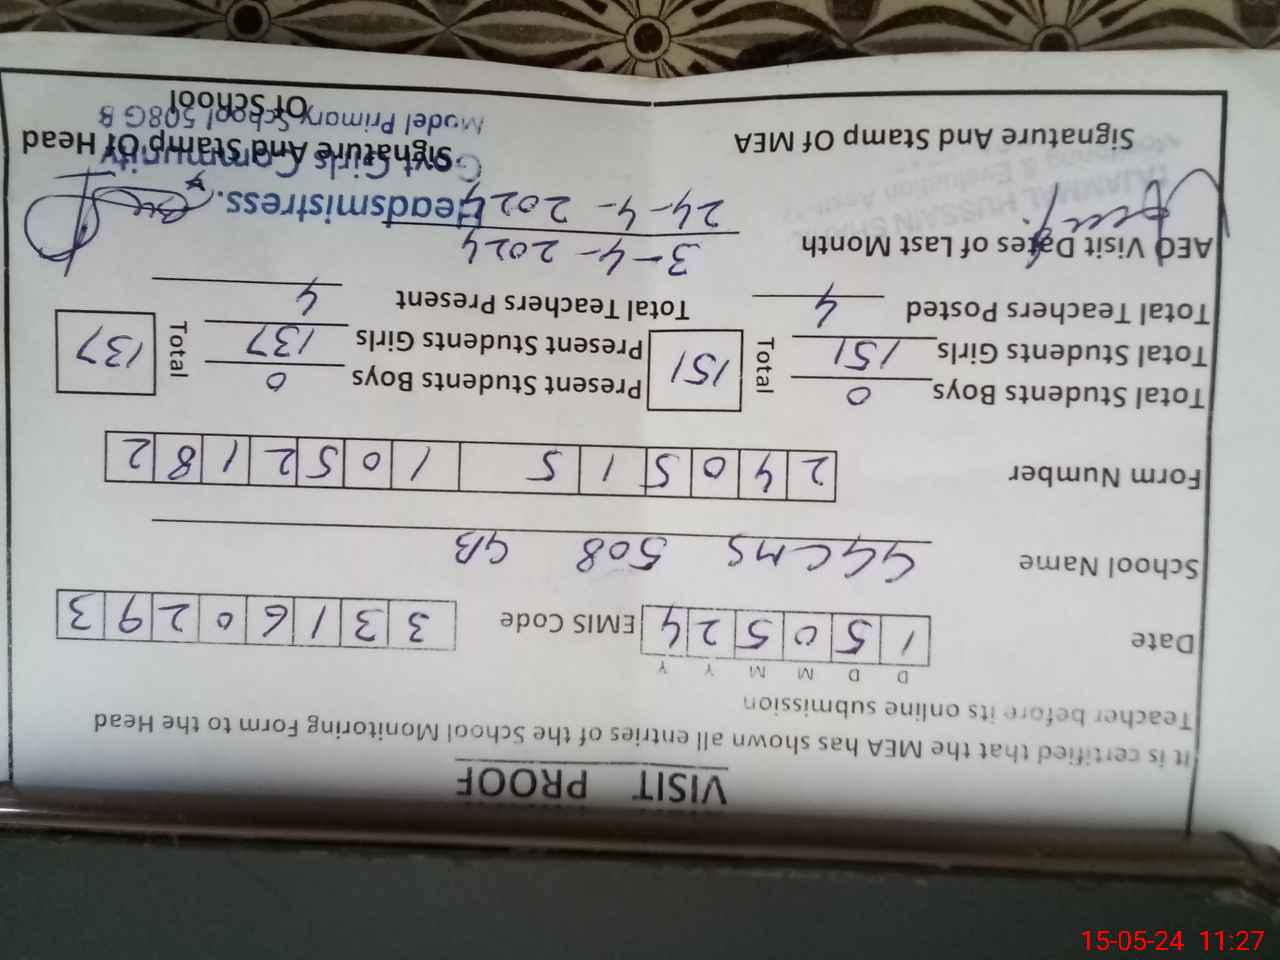 VISIT PROOF
It is certified that the MEA has shown all entries of the School Monitoring Form to the Head
Teacher before its online submission
D D M M Y Y
Date 1 5 0 5 2 4 EMIS Code 3 3 1 6 0 2 9 3
School Name GGCMS 508 GB
Form Number 2 4 0 5 1 5 1 0 5 2 1 8 2
Total Students Boys 0 Total 151 Present Students Boys 0 Total 137
Total Students Girls 151 Present Students Girls 137
Total Teachers Posted 4 Total Teachers Present 4
AEO Visit Dates of Last Month 3-4-2024
24-4-2024
Headsmistress.
Govt Girls Community
Model Primary School 508GB
TAJAMMAL HUSSAIN
Monitoring & Evaluation
Signature And Stamp Of MEA Signature And Stamp Of Head
Of School
15-05-24 11:27